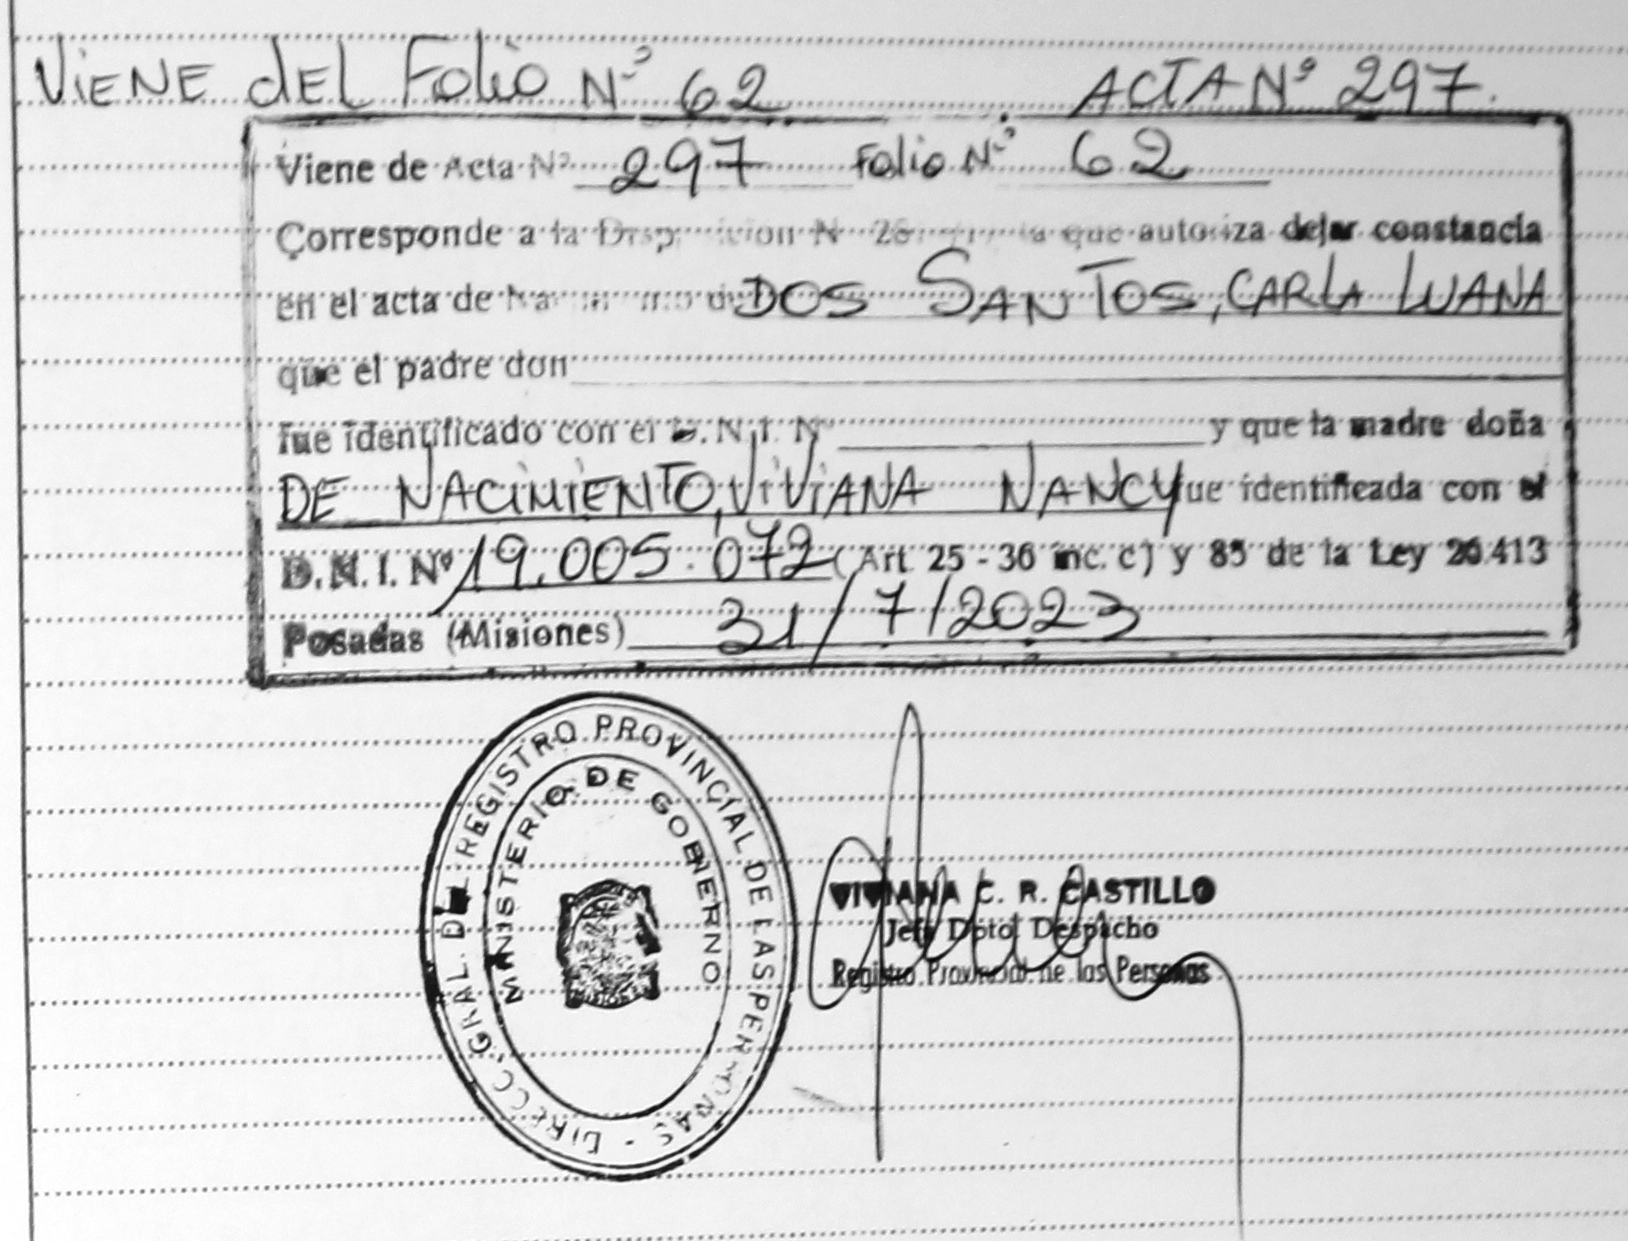 ViENE dEL Folio Nº 62 ACTA Nº 297.
Viene de Acta Nº 297 Folio Nº 62
Corresponde a la que autoriza dejar constancia
en el acta de DOS SANTOS, CARLA LUANA
que el padre don
fue identificado con el D.N.I. Nº y que la madre doña
DE NACIMIENTO, ViViANA NANCY ue identificada con el
D.N.I. Nº 19.005.072 (Art 25 - 36 inc. c) y 85 de la Ley 26.413
Posadas (Misiones) 31/7/2023
DIRECC. GRAL. DEL REGISTRO PROVINCIAL DE LAS PERSONAS -
MINISTERIO DE GOBIERNO
VIVIANA C. R. CASTILLO
Jefa Dptol Despacho
Registro Provincial de las Personas